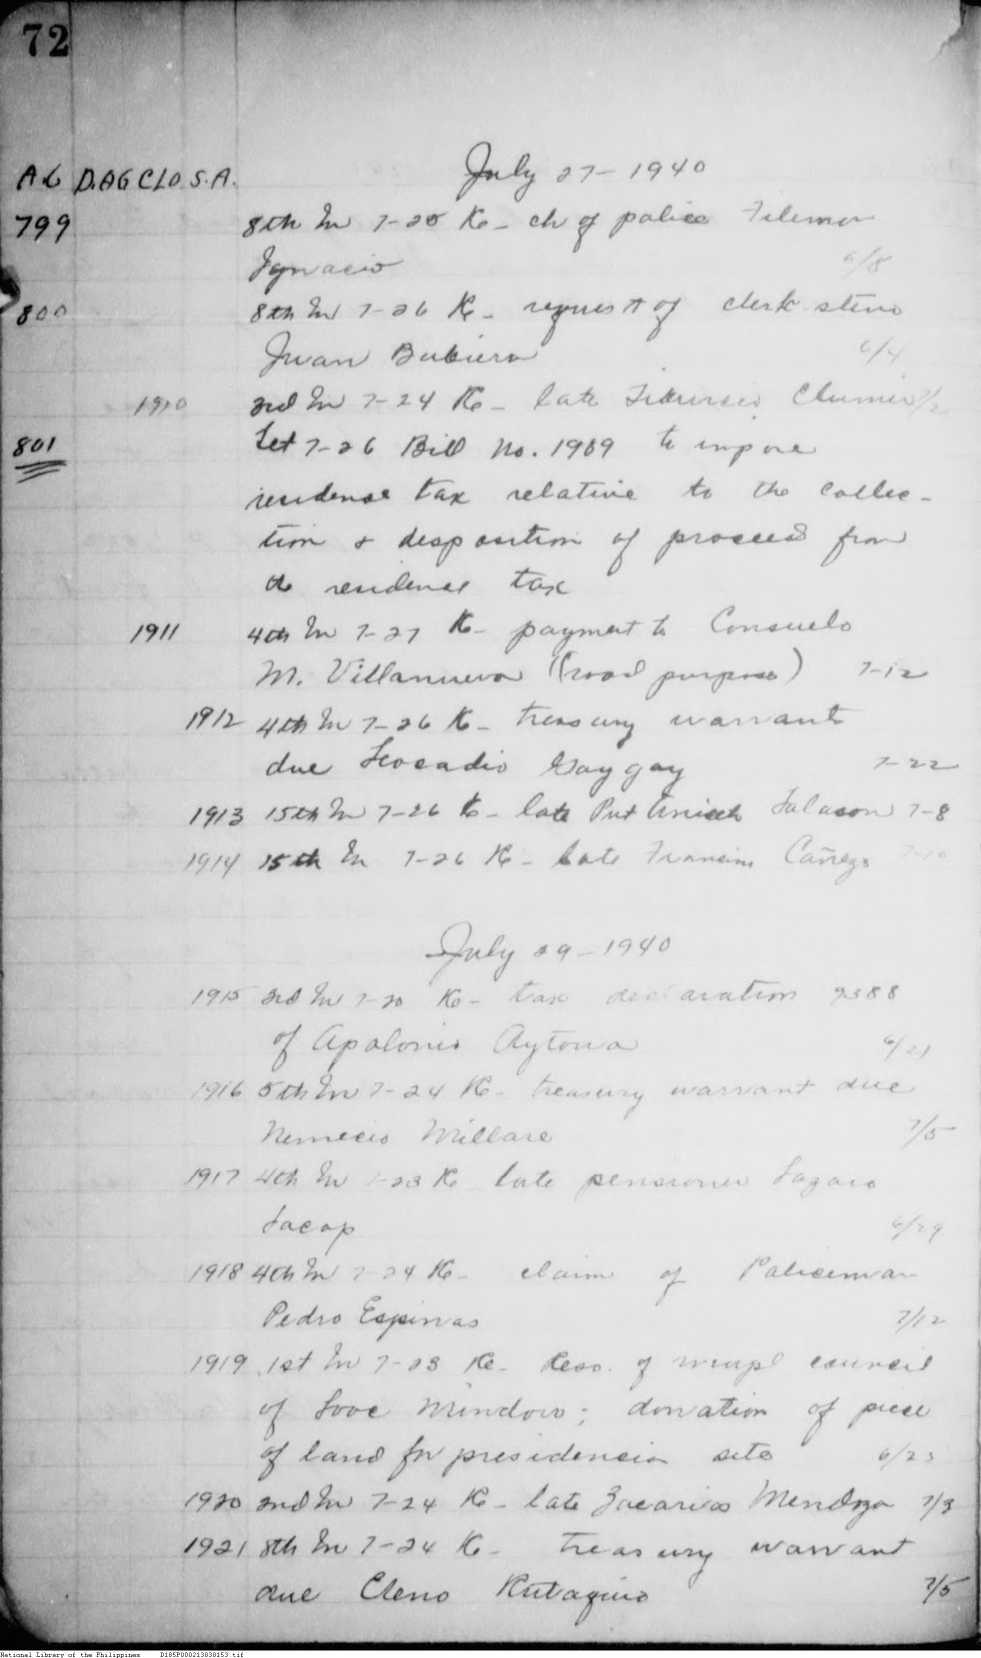 72
July 27-1940
AG D.AG CLO S.A.
799 8th In 7-25 K- ch of police Filemon
Ignacio 6/8
800 8th In 7-26 K- request of clerk steno
Juan Bubiera 6/4
1910 3rd In 7-24 K- late
801 Let 7-26 Bill No. 1909 to impose
residense tax relative to the collec-
tion & desposition of proceed from
residence tax
1911 4th In 7-27 K- payment to Consuelo
M. Villanueva (road purpose) 7-12
1912 4th In 7-26 K- treasury warrant
due Leocadio Gaygay 7-22
1913 15th In 7-26 K- late Put 7-8
1914 15th In 7-26 K- late
July 29-1940
1915 3rd In 7-20 K- tax declaration 9388
of Apolonio Aytona 6/21
1916 5th In 7-24 K- treasury warrant due
Nemecio Millare 7/5
1917 4th In 7-23 K late pensioner Lazaro
Lacap 6/29
1918 4th In 7-24 K- claim of Policeman
Pedro Espinas 7/12
1919 1st In 7-23 K- Reso. of council
of Looc Mindoro; donation of piece
of land for presidencia site 6/23
1920 2nd In 7-24 K- late Zacarias Mendoza 7/3
1921 8th In 7-24 K- treasury warrant
due Cleno 7/5
National Library of the Philippines D185P000213838153.tif